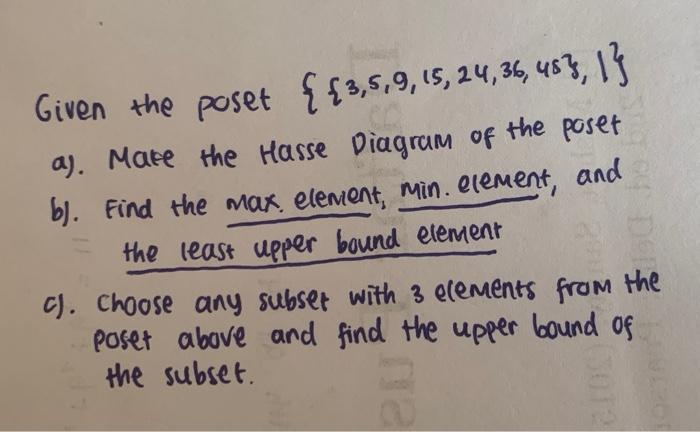 Given the poset { {3,5,9,15,24,36,45}, | }
a). Make the Hasse Diagram of the poset
b). Find the max. element, min. element, and
the least upper bound element
c). Choose any subset with 3 elements from the
poset above and find the upper bound of
the subset.